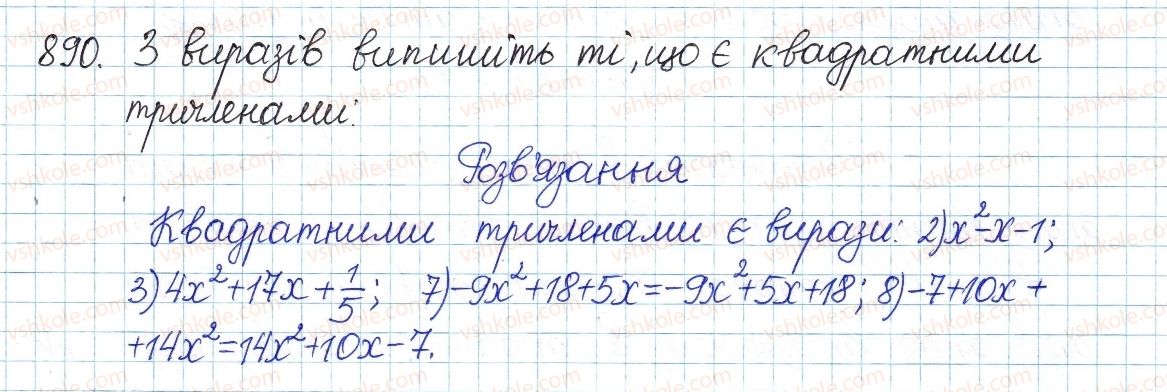 890. З виразів випишіть ті, що є квадратними
тричленами:
Розв'язання
Квадратними тричленами є вирази: 2) x²-x-1;
3) 4x²+17x+1/5; 7) -9x²+18+5x=-9x²+5x+18; 8) -7+10x+
+14x²=14x²+10x-7.